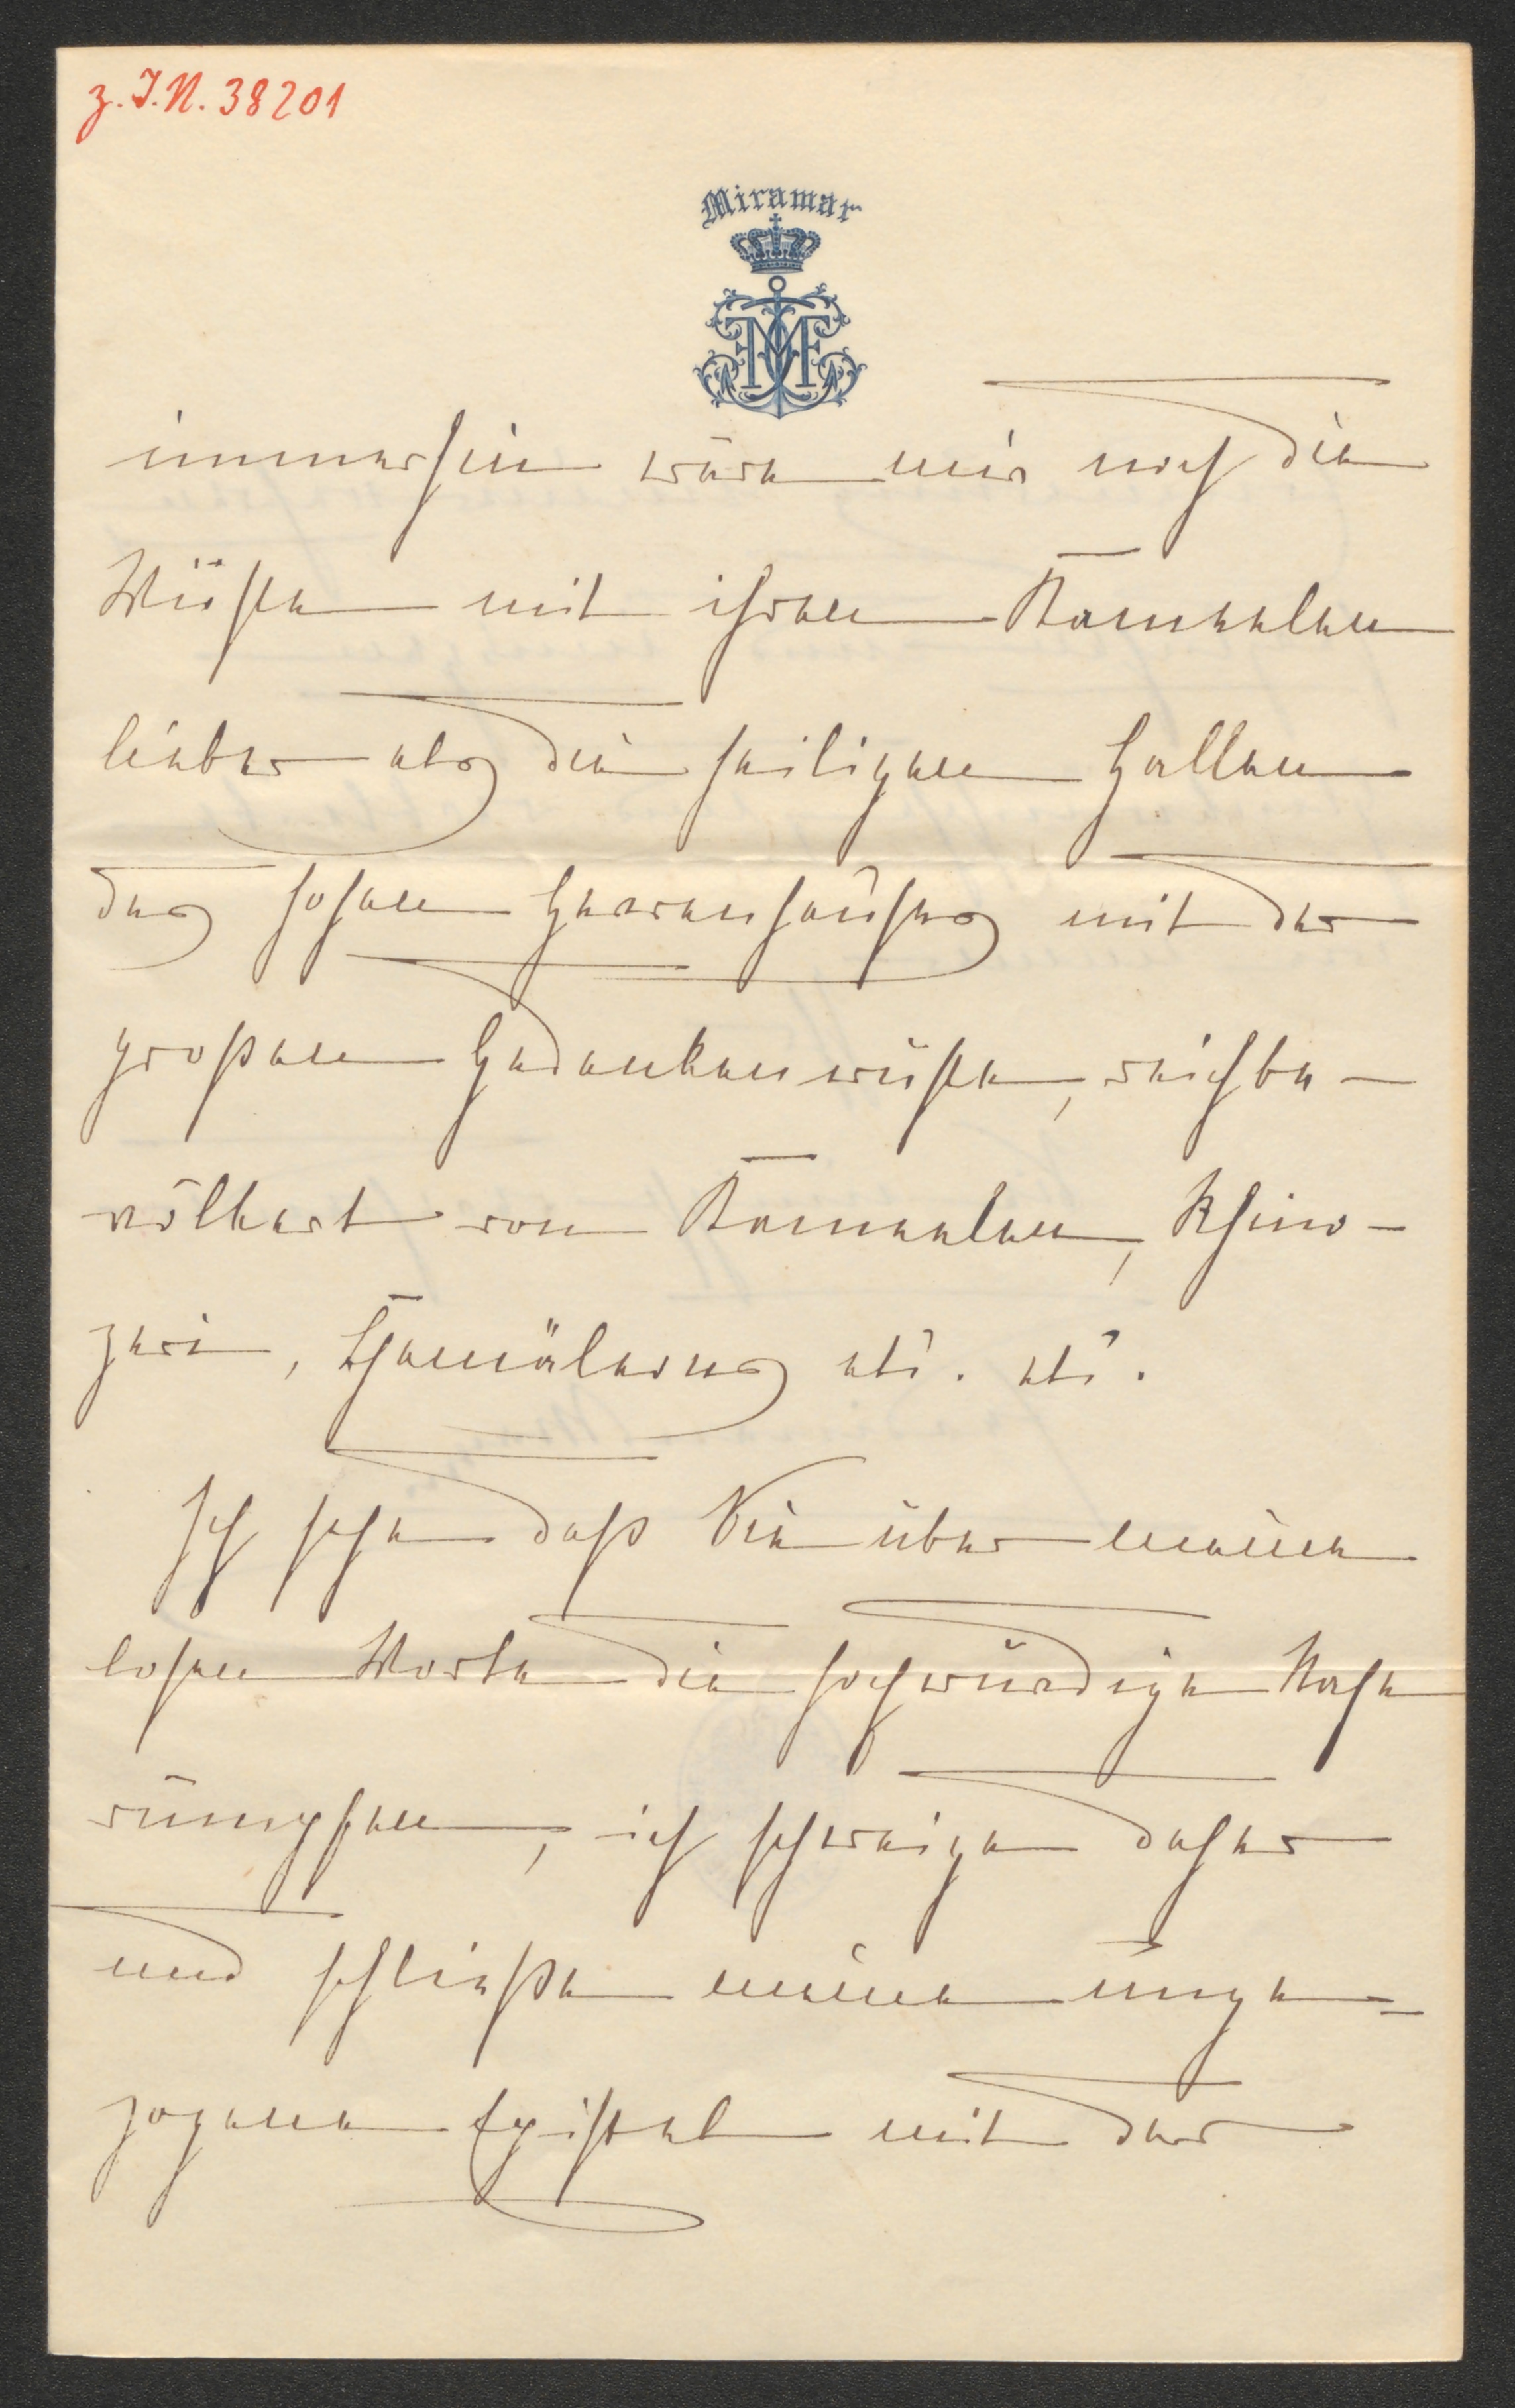 z. I. N. 38201
Miramar
immerhin wäre mir noch die
Wüste mit ihren Kameelen
lieber als die heiligen Hallen
des hohen Herrenhauses mit der
großen Gedankenwüste, reichbe-
völkert von Kameelen, Rhino-
zeri, etc. etc.
Ich sehe daß Sie über meine
losen Worte die hochwürdige Nase
rümpfen, ich schweige daher
und schließe meine unge=
zogene Epistel mit der